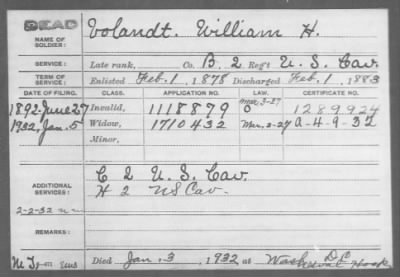 DEAD
NAME OF SOLDIER: Volandt. William H.
SERVICE: Late rank, Co. B, 2 Reg't U. S. Cav.
TERM OF SERVICE: Enlisted Feb. 1, 1878 Discharged Feb. 1, 1883
DATE OF FILING. CLASS. APPLICATION NO. LAW. CERTIFICATE NO.
1892. June 27 Invalid, 1118879 1289924
1932, Jan. 5 Widow, 1710432 Mar. 3-27 A-4-9-32
Minor,
ADDITIONAL SERVICES: C 2 U. S. Cav.
H 2 US Cav.
2-2-32
Died Jan. 3, 1932 at Wash. D C